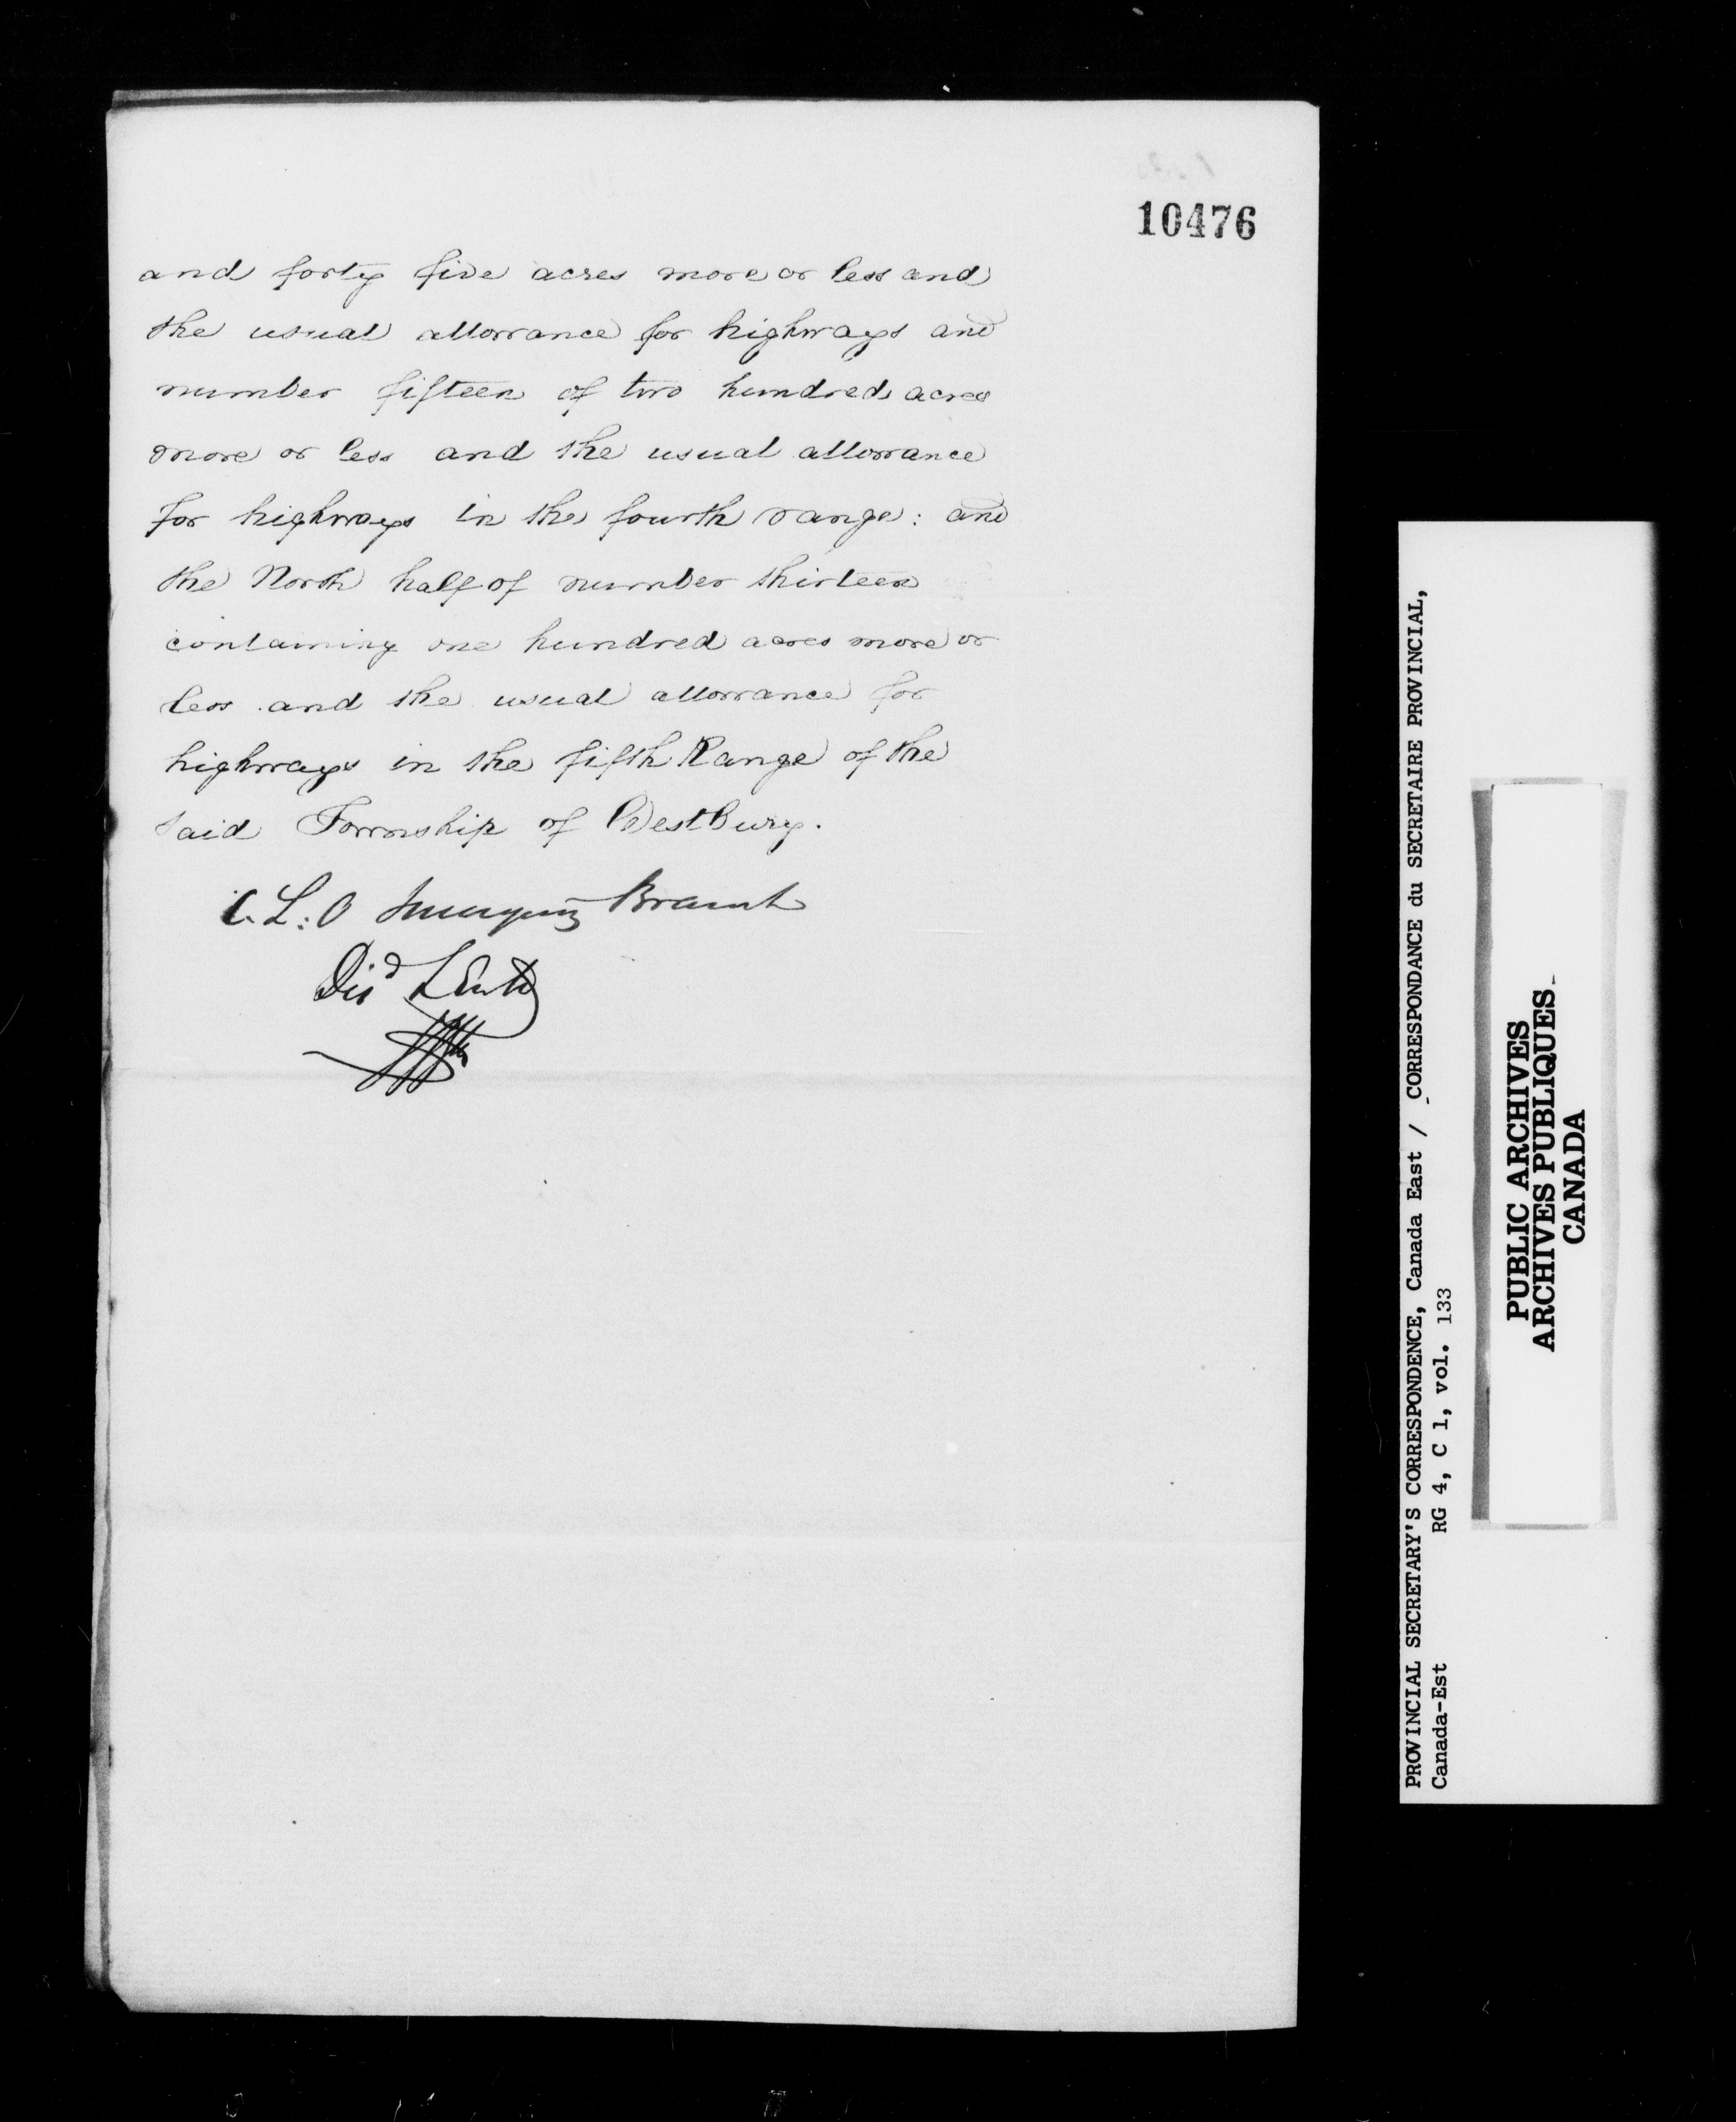 10476
and forty five acres more or less and
the usual allowance for highways and
number fifteen of two hundred acres
more or less and the usual allowance
for highways in the fourth range: and
the North half of number thirteen
containing one hundred acres more or
less and the usual allowance for
highways in the fifth Range of the
said Township of Westbury.
C. L: O Surveying Branch
PROVINCIAL SECRETARY'S CORRESPONDENCE, Canada East / CORRESPONDANCE du SECRETAIRE PROVINCIAL,
Canada-Est RG 4, C 1, vol. 133
PUBLIC ARCHIVES
ARCHIVES PUBLIQUES
CANADA